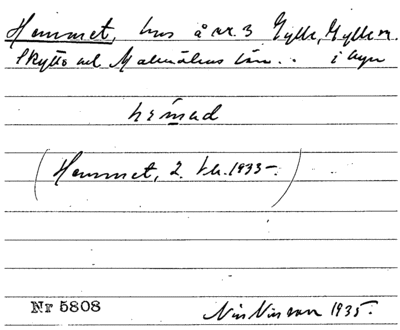 Hemmet, hus å nr. 3 Gylle, Gylle sn.
Skytts hd. Malmöhus län. i byn
hemad
(Hemmet, 2. bl. 1935.)
Nr 5808 Nils Nilsson 1935.